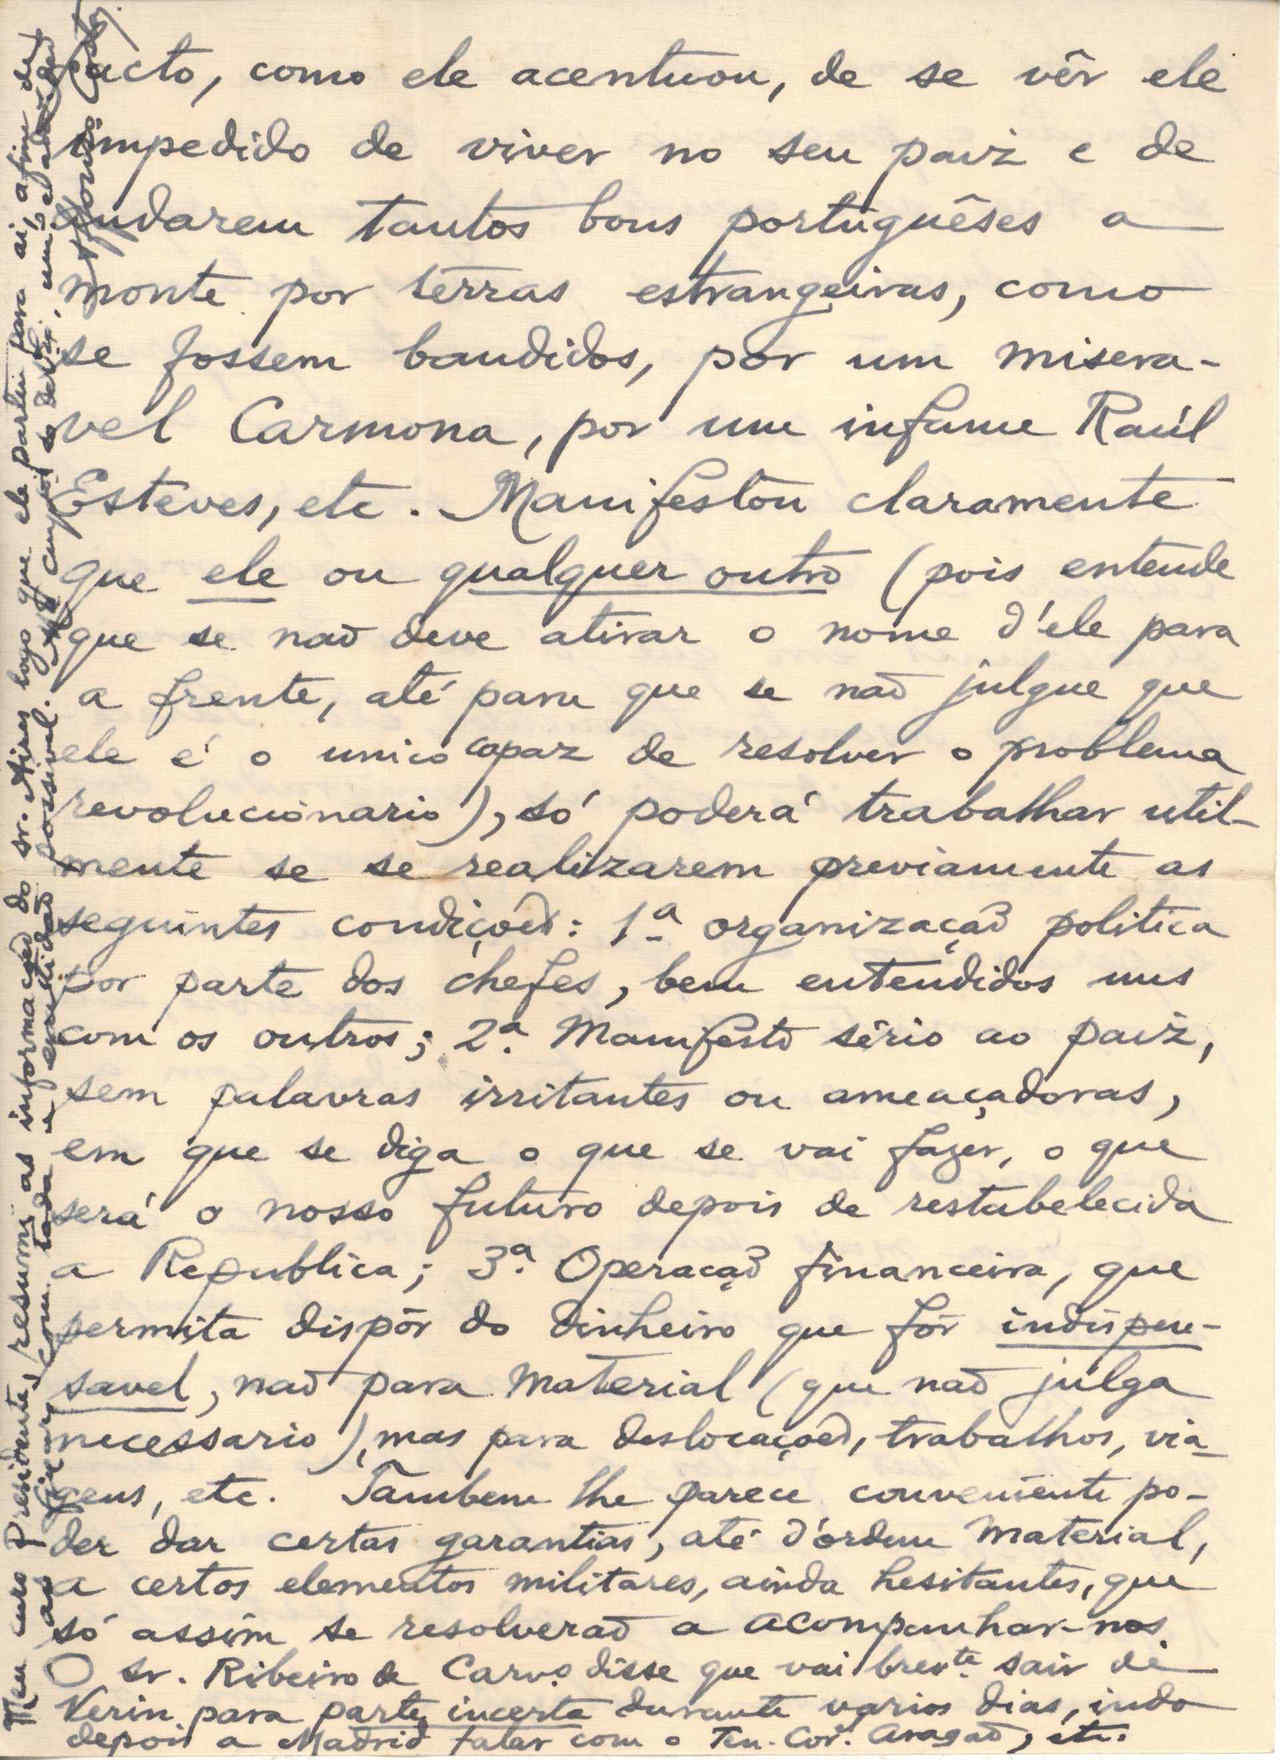 facto, como ele acentuou, de se vêr ele
impedido de viver no seu paiz e de
andarem tantos bons portuguêses a
monte por terras estrangeiras, como
se fossem bandidos, por um misera-
vel Carmona, por um infame Raúl
Esteves, etc. Manifestou claramente
que ele ou qualquer outro (pois entende
que se não deve atirar o nome d'ele para
a frente, até para que se não julgue que
ele é o unico capaz de resolver o problema
revolucionario), só poderá trabalhar util-
mente se se realizarem previamente as
seguintes condições: 1ª organização politica
por parte dos chefes, bem entendidos uns
com os outros; 2ª. Manifesto sério ao paiz,
sem palavras irritantes ou ameaçadoras,
em que se diga o que se vai fazer, o que
será o nosso futuro depois de restabelecida
a Republica; 3ª. Operação financeira, que
permita dispôr do dinheiro que fôr indispen-
savel, não para material (que não julga
necessario), mas para deslocações, trabalhos, via-
gens, etc. Tambem lhe parece conveniente po-
der dar certas garantias, até d'ordem material,
a certos elementos militares, ainda hesitantes, que
só assim se resolverão a acompanhar-nos.
O sr. Ribeiro de Carvº. disse que vai brevte. sair de
Verin para parte incerta durante varios dias, indo
depois a Madrid falar com o Ten. Cor. Aragão, etc.
Meu caro Presidente, resumi as informações do sr. Aires logo que ele partiu para ai, afim de
as fixar, com toda a exactidão possivel.